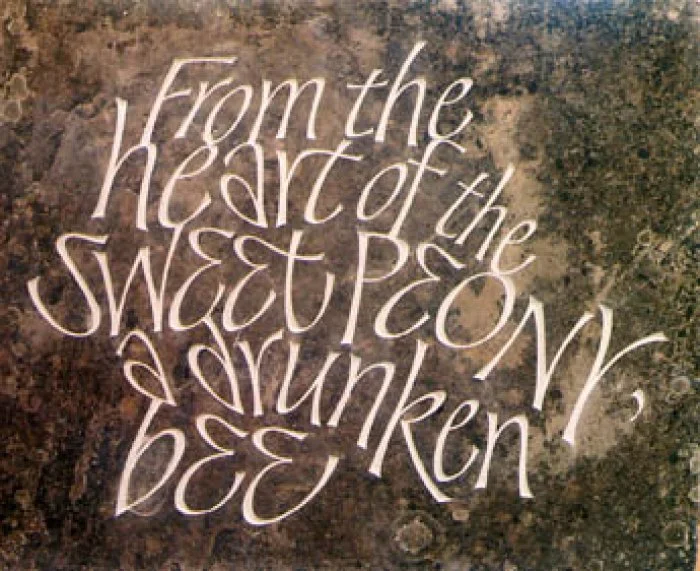 From the
heart of the
SWEET PEONY,
a drunken
bEE